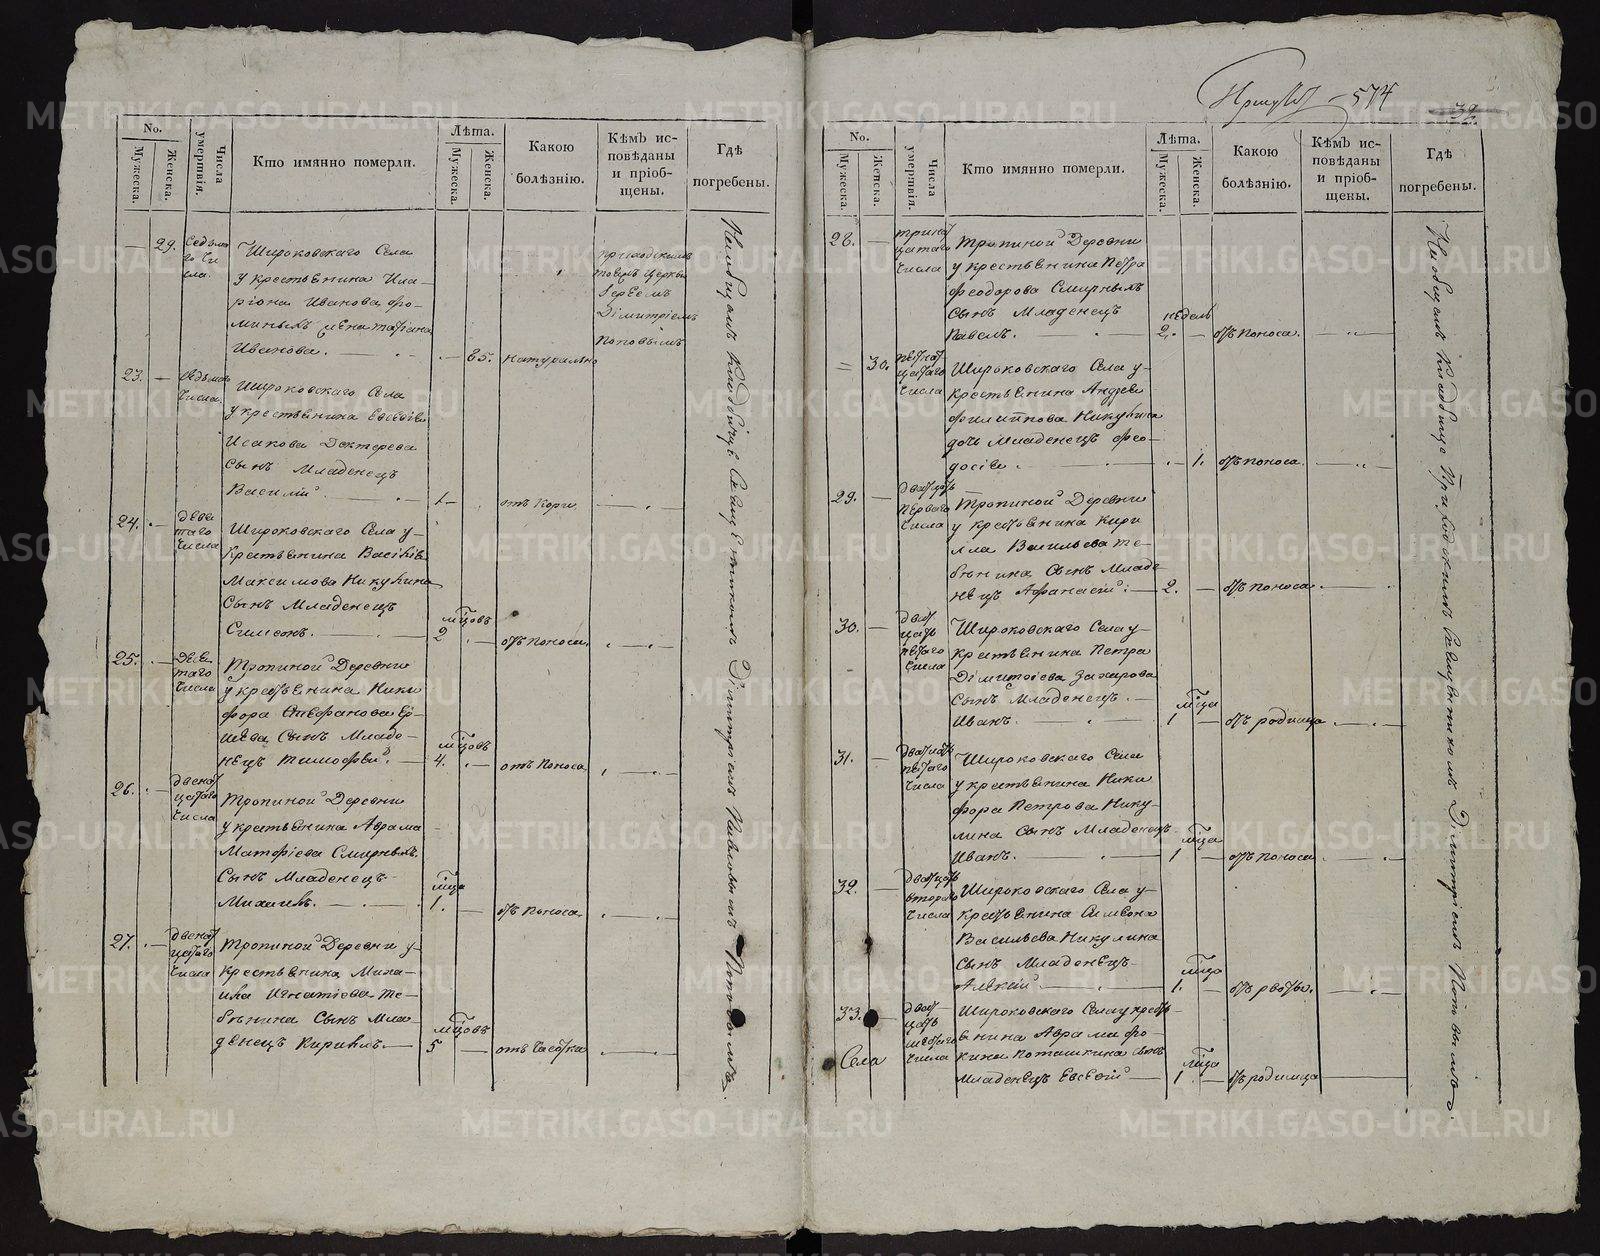 No.
Мужеска.
Женска.
Числа умертвія.
Кто имянно померли.
Лѣта.
Мужеска.
Женска.
Какою болѣзнію.
Кѣмъ исповѣданы и пріобщены.
Гдѣ погребены.
29. Седьмаго числа.
Широковскаго Села
у крестьенина Иларіона Иванова
Иванова. 85. натурально
приходскимъ
церкви
Іереемъ
Димитріемъ
Поповымъ
23. числа.
Широковскаго Села
у крестьенина Евсевіа
Исакова Дектерева
Сынъ Младенецъ
Василій 1 отъ Кори
24. девятаго числа
Широковскаго Села у
Крестьенина Васілія
Максимова Никулина
Сынъ Младенецъ мѣцовъ
Симеонъ. 2 отъ поноса.
25. числа
Тропиной Деревни
у крестьенина Ники
фора Стефанова
Сынъ Младе- мѣцовъ
нецъ Тимофей. 4. отъ поноса
26. двенатцатаго числа
Тропиной Деревни
у крестьенина Аврама
Матфіева Смирныхъ
Сынъ Младенецъ мѣца
Михаилъ. 1. отъ поноса.
27. двенатцатаго числа
Тропиной Деревни у
Крестьенина Михаила Игнатіева Те-
бенина Сынъ Мла- мѣцовъ
денецъ Кирилъ. 5 отъ
На общемъ Кладбищѣ Священникомъ Димитріемъ Поповымъ.
574
32.
No.
Мужеска.
Женска.
Числа умертвія.
Кто имянно померли.
Лѣта.
Мужеска.
Женска.
Какою болѣзнію.
Кѣмъ исповѣданы и пріобщены.
Гдѣ погребены.
28. тринатцатаго числа
Тропиной Деревни
у крестьенина Петра
Феодорова Смирныхъ
Сынъ Младенецъ недель
Павелъ. 2. отъ поноса.
30. числа
Широковскаго Села у
Крестьенина Андреа
Филиппова Никулина
дочь Младенецъ Фео-
досіа. 1. отъ поноса.
29. двадцать перваго числа
Тропиной Деревни
у крестьенина Кири
лла Васильева Те-
бенина Сынъ Младе-
нецъ Афанасій. 2. отъ поноса.
30. двадцать числа
Широковскаго Села у
крестьенина Петра
Димитріева Захарова
Сынъ Младенецъ. мѣца
Иванъ. 1 отъ родимца
31. двадцать числа
Широковскаго Села
у крестьенина Ники
фора Петрова Нику-
лина Сынъ Младенецъ мѣца
Иванъ. 1 отъ поноса
32. двадцать втораго числа
Широковскаго Села у
крестьенина Симеона
Васильева Никулина
Сынъ Младенецъ мѣца
Алексій. 1. отъ рвоты.
33. двадцать числа
Широковскаго Села у кресть-
енина Аврама Фо-
кина Поташкина сынъ мѣца
Младенецъ Евсевій 1 отъ родимца
Села
На общемъ Кладбищѣ Приходскимъ Священникомъ Димитріемъ Поповымъ.
METRIKI.GASO-URAL.RU